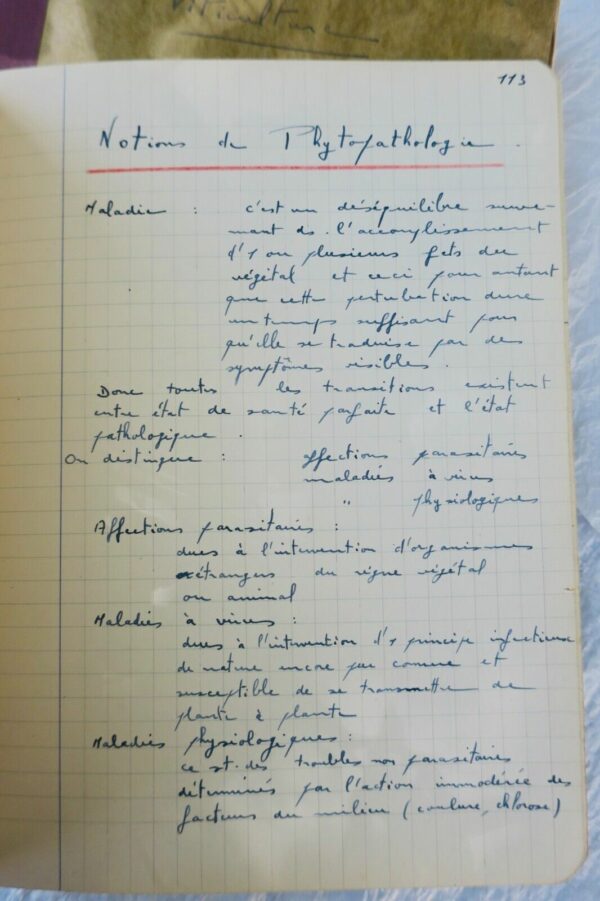 Viticulture
113
Notions de Phytopathologie.
Maladie : c'est un déséquilibre surve-
nant ds. l'accomplissement
d'1 ou plusieurs fcts du
végétal et ceci pour autant
que cette perturbation dure
un temps suffisant pour
qu'elle se traduise par des
symptômes visibles.
Donc toutes les transitions existent
entre état de santé parfaite et l'état
pathologique.
On distingue : affections parasitaires
maladies à virus
" physiologiques
Affections parasitaires :
dues à l'intervention d'organismes
étrangers du règne végétal
ou animal
Maladies à virus :
dues à l'intervention d'1 principe infectieux
de nature encore peu connue et
susceptible de se transmettre de
plante à plante
Maladies physiologiques :
ce st. des troubles non parasitaires
déterminés par l'action immodérée des
facteurs du milieu (coulure, chlorose)